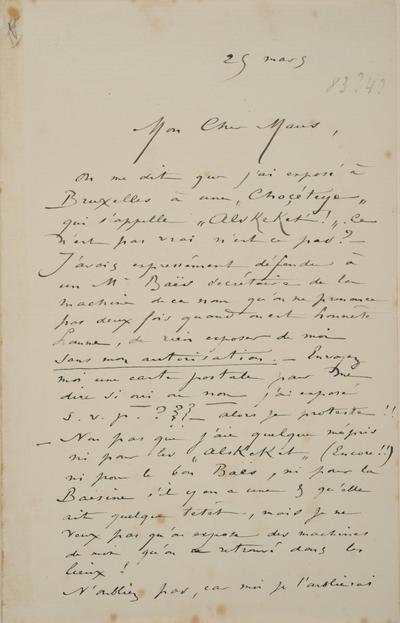 25 mars
83?4?
Mon Cher Maus,
On me dit que j'ai exposé à
Bruxelles à une „Choçétege„
qui s'appelle „AlsKeKet!„. Ce
n'est pas vrai n'est ce pas? —
J'avais expressément défendu à
un Mr Baës secrétaire de la
machine de ce nom qu'on ne prononce
pas deux fois quand on est honnete
homme, de rien exposer de moi
sans mon autorisation. — Envoyez
moi une carte postale pour me
dire si oui ou non j'ai exposé
s. v. p. ? ? ? ? — alors je proteste !!
— Non pas que j'aie quelque mépris
ni pour les „AlsKeKet„ (Encore!!)
ni pour le bon Baës, ni pour la
Baesine s'il y en a une & qu'elle
ait quelque tétét, mais je ne
veux pas qu'on expose des machines
de moi qu'on a retrouvé dans les
lieux !
N'oubliez pas, car moi je l'oublierai